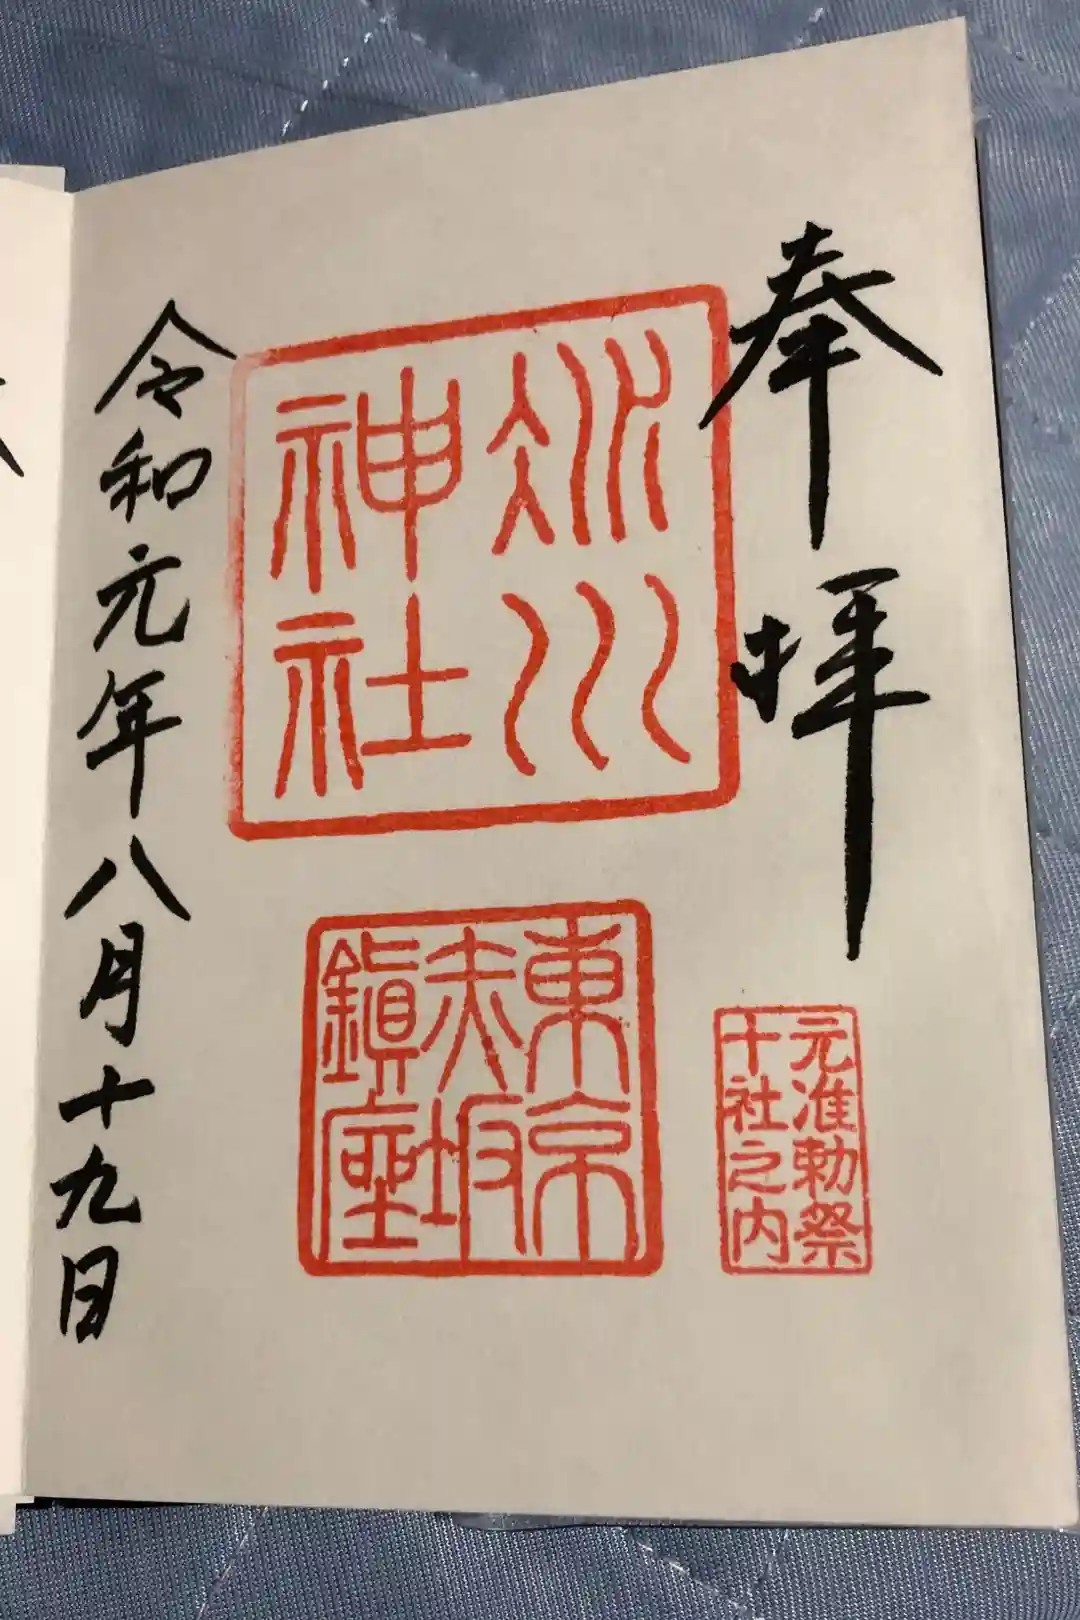 奉拝
冰川
神社
元准勅祭
十社之内
東京
赤坂
鎭座
令和元年八月十九日